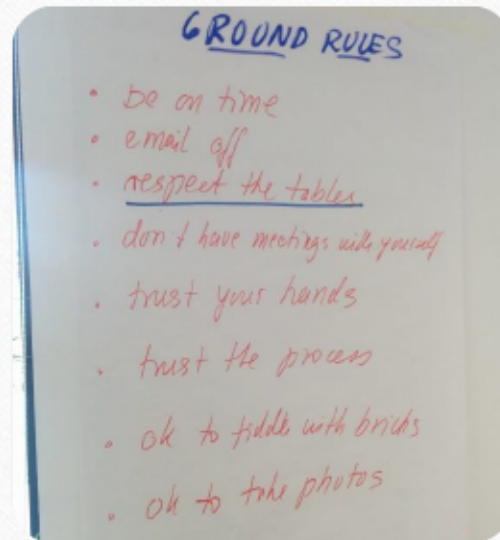 GROUND RULES
• be on time
• email off
• respect the tables
• don't have meetings with yourself
• trust your hands
• trust the process
• ok to fiddle with bricks
• ok to take photos